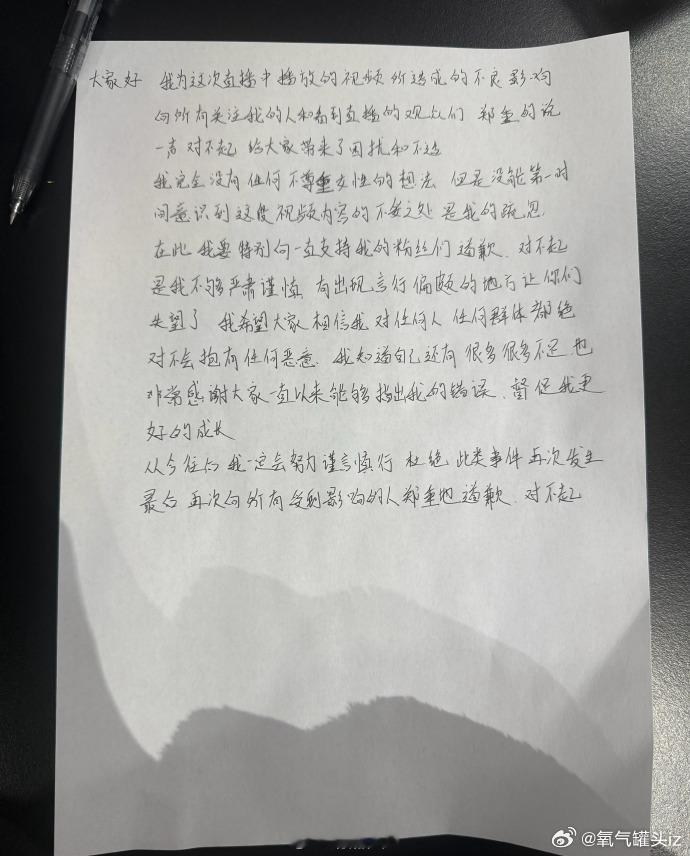 大家好 我为这次直播中播放的视频所造成的不良影响
向所有关注我的人和看到直播的观众们 郑重的说
一声 对不起 给大家带来了困扰和不适
我完全没有任何不尊重女性的想法 但是没能第一时
间意识到这度视频内容的不妥之处 是我的疏忽.
在此 我要特别向一直支持我的粉丝们道歉. 对不起
是我不够严肃谨慎 有出现言行偏颇的地方让你们
失望了 我希望大家相信我 对任何人 任何群体都绝
对不会抱有任何恶意. 我知道自己还有很多很多不足 也
非常感谢大家一直以来能够指出我的错误、督促我更
好的成长
从今往后 我一定会努力谨言慎行 杜绝此类事件再次发生
最后 再次向所有受到影响的人郑重地道歉. 对不起
@氧气罐头jz